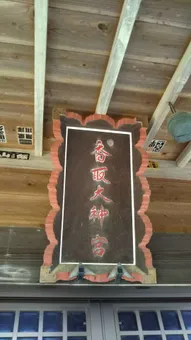 香取大神宮